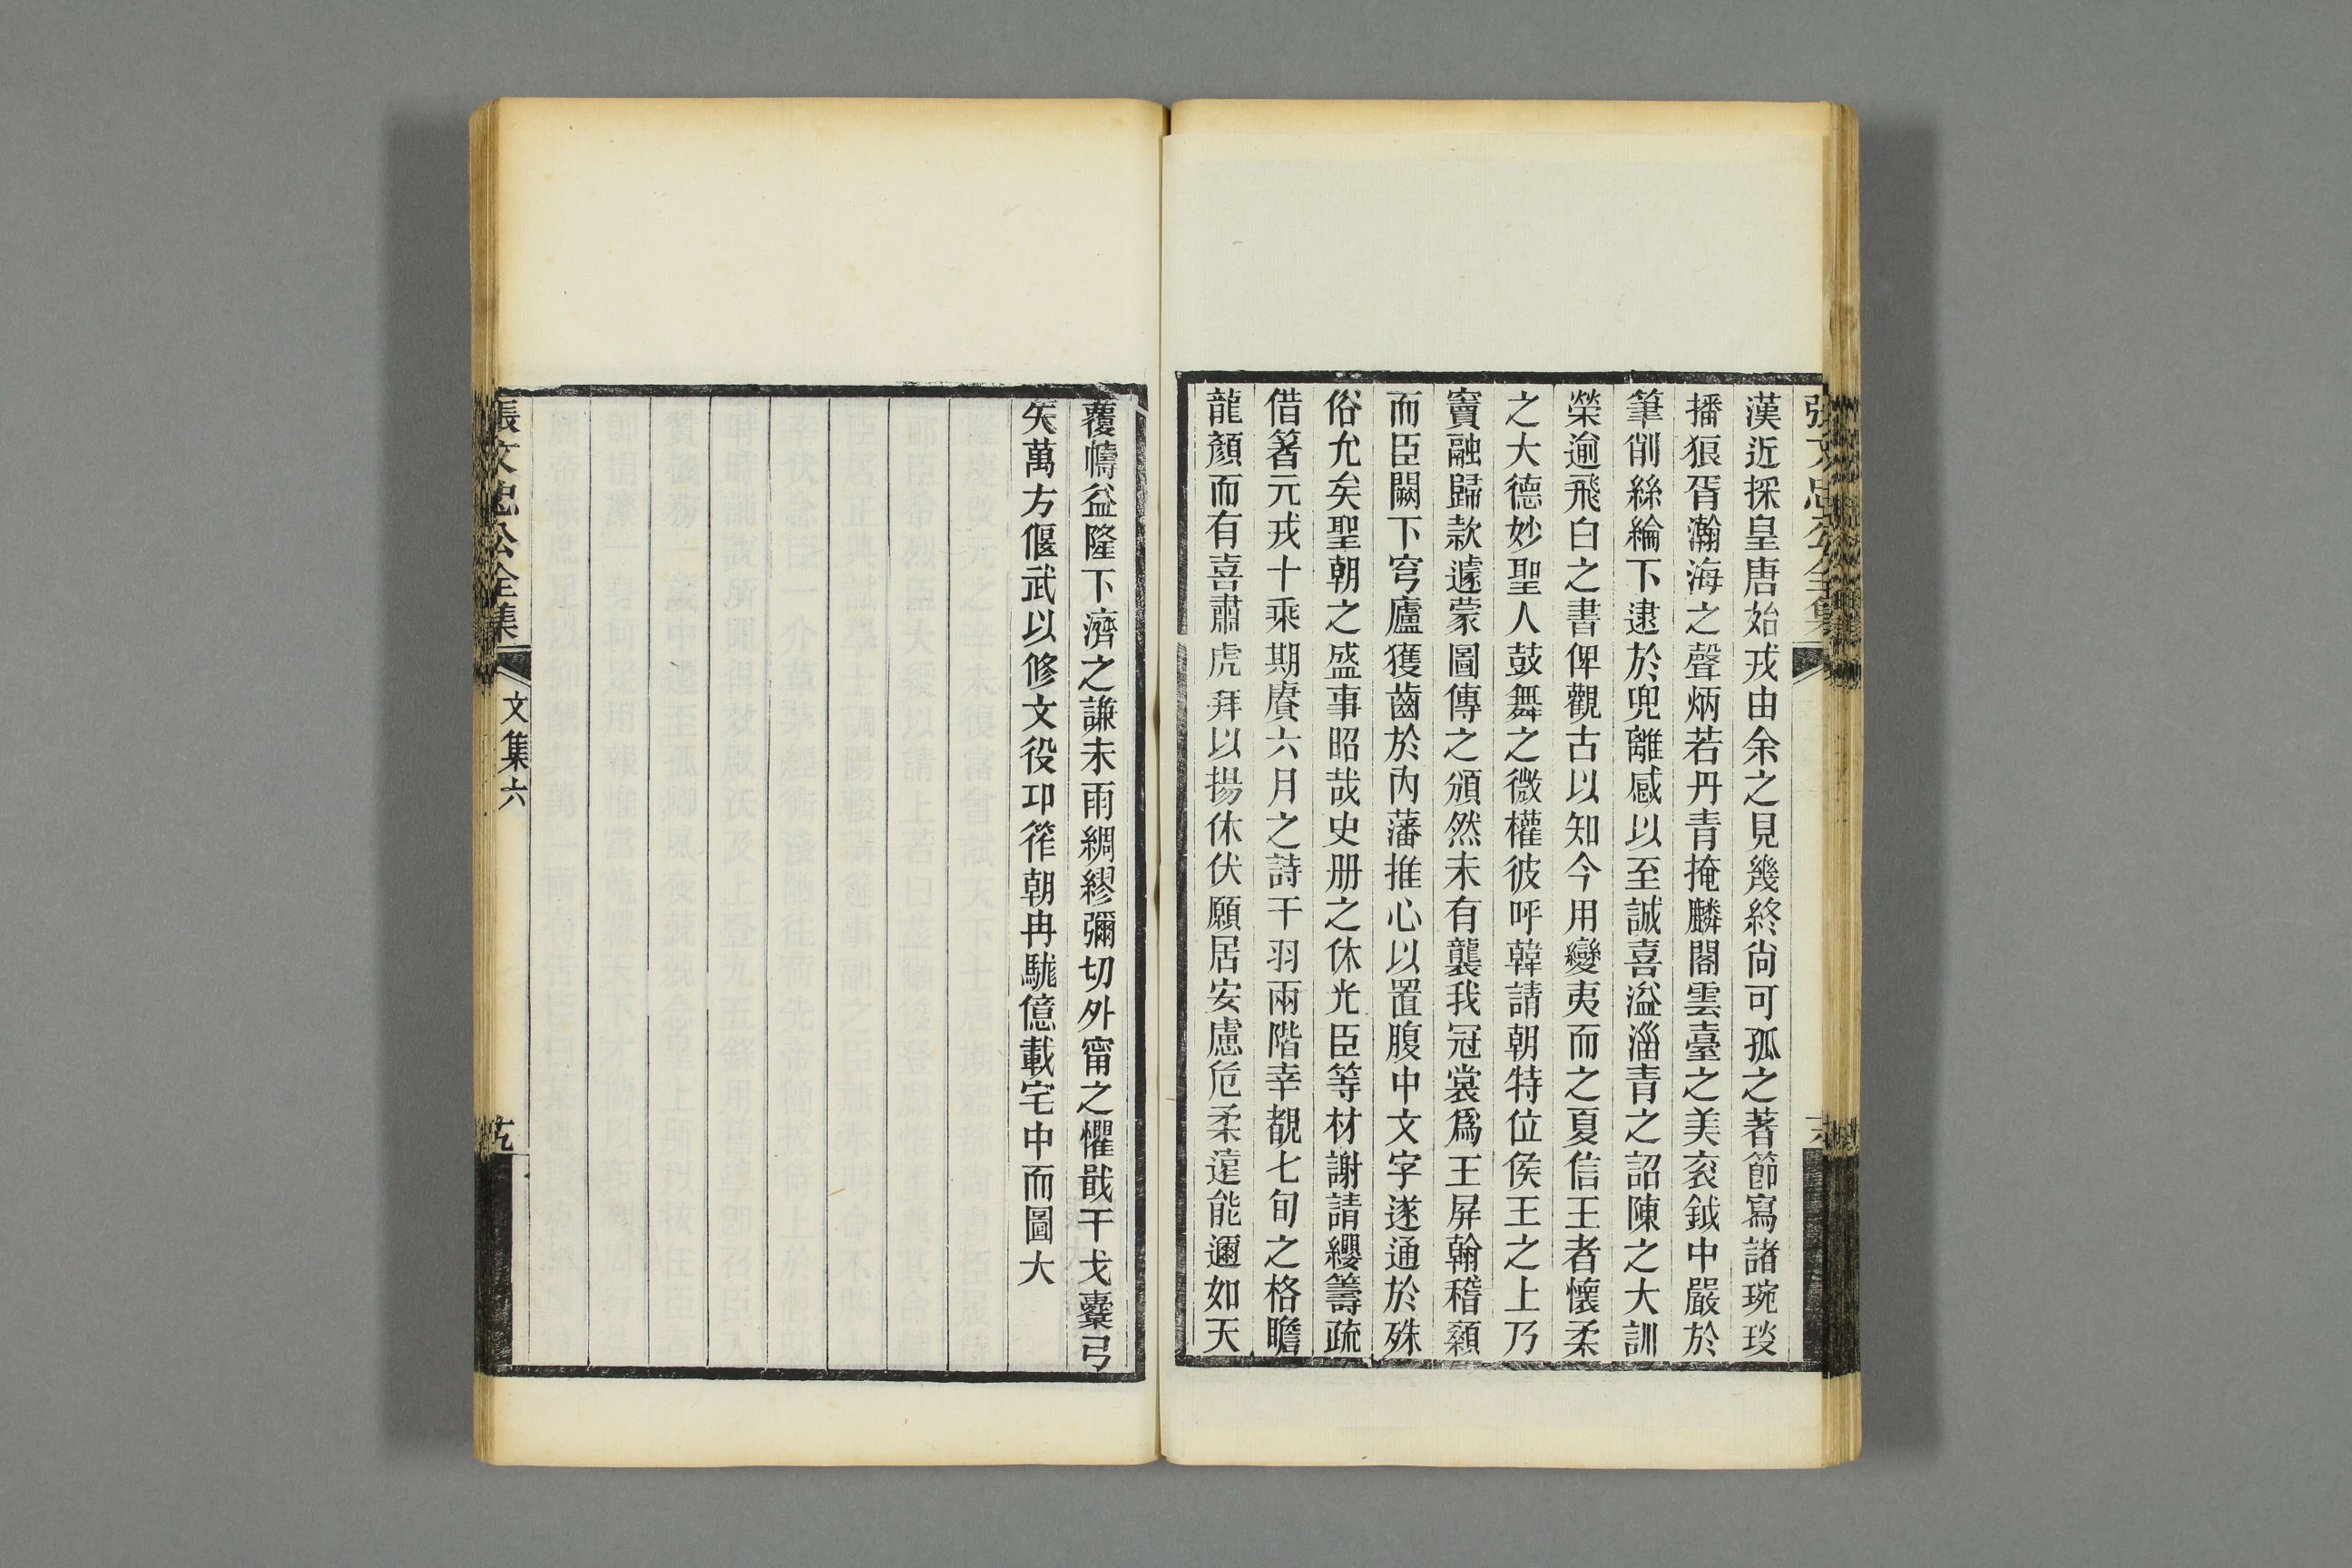 漢近採皇唐始戎由余之見幾終尙可孤之著節寫諸琬琰
播狼胥瀚海之聲炳若丹青掩麟閣雲臺之美衮鉞中嚴於
筆削絲綸下逮於兜離感以至誠喜溢淄青之詔陳之大訓
榮逾飛白之書俾觀古以知今用變夷而之夏信王者懷柔
之大德妙聖人鼓舞之微權彼呼韓請朝特位侯王之上乃
竇融歸款遽蒙圖傳之頒然未有襲我冠裳爲王屏翰稽顙
而臣闕下穹廬獲齒於內藩推心以置腹中文字遂通於殊
俗允矣聖朝之盛事昭哉史册之休光臣等材謝請纓籌疏
借箸元戎十乘期賡六月之詩干羽兩階幸覩七旬之格瞻
龍顏而有喜肅虎拜以揚休伏願居安慮危柔遠能邇如天
覆幬益隆下濟之謙未雨綢繆彌切外甯之懼戢干戈櫜弓
矢萬方偃武以修文役邛筰朝冉駹億載宅中而圖大
張文忠公全集
文集六